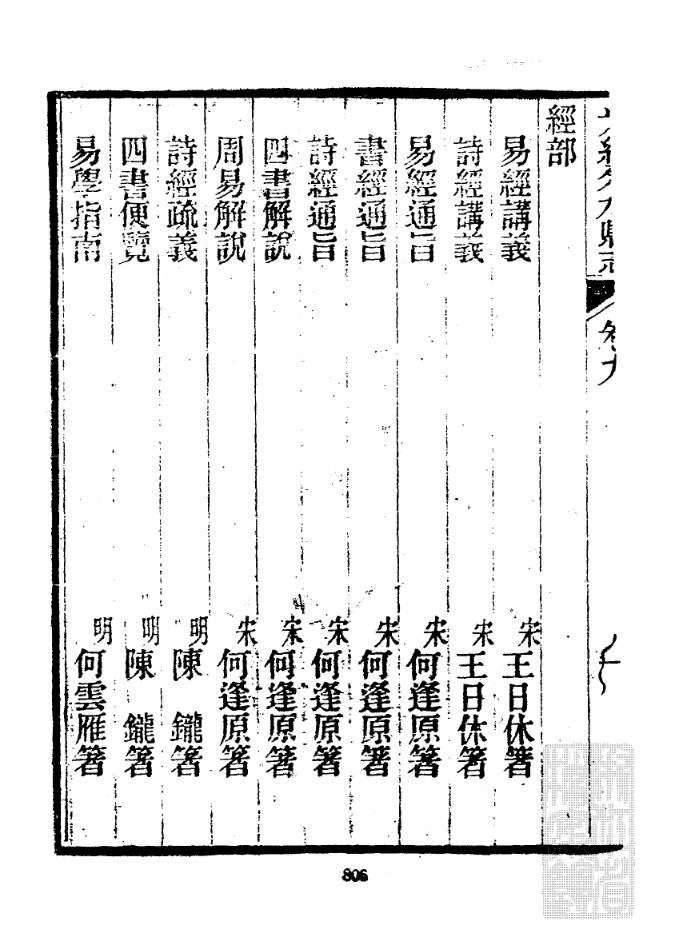 卷九
經部
易經講義 宋 王日休箸
詩經講義 宋 王日休箸
易經通旨 宋 何逢原箸
書經通旨 宋 何逢原箸
詩經通旨 宋 何逢原箸
四書解說 宋 何逢原箸
周易解說 宋 何逢原箸
詩經疏義 明 陳鑨箸
四書便覽 明 陳鑨箸
易學指南 明 何雲雁箸
806